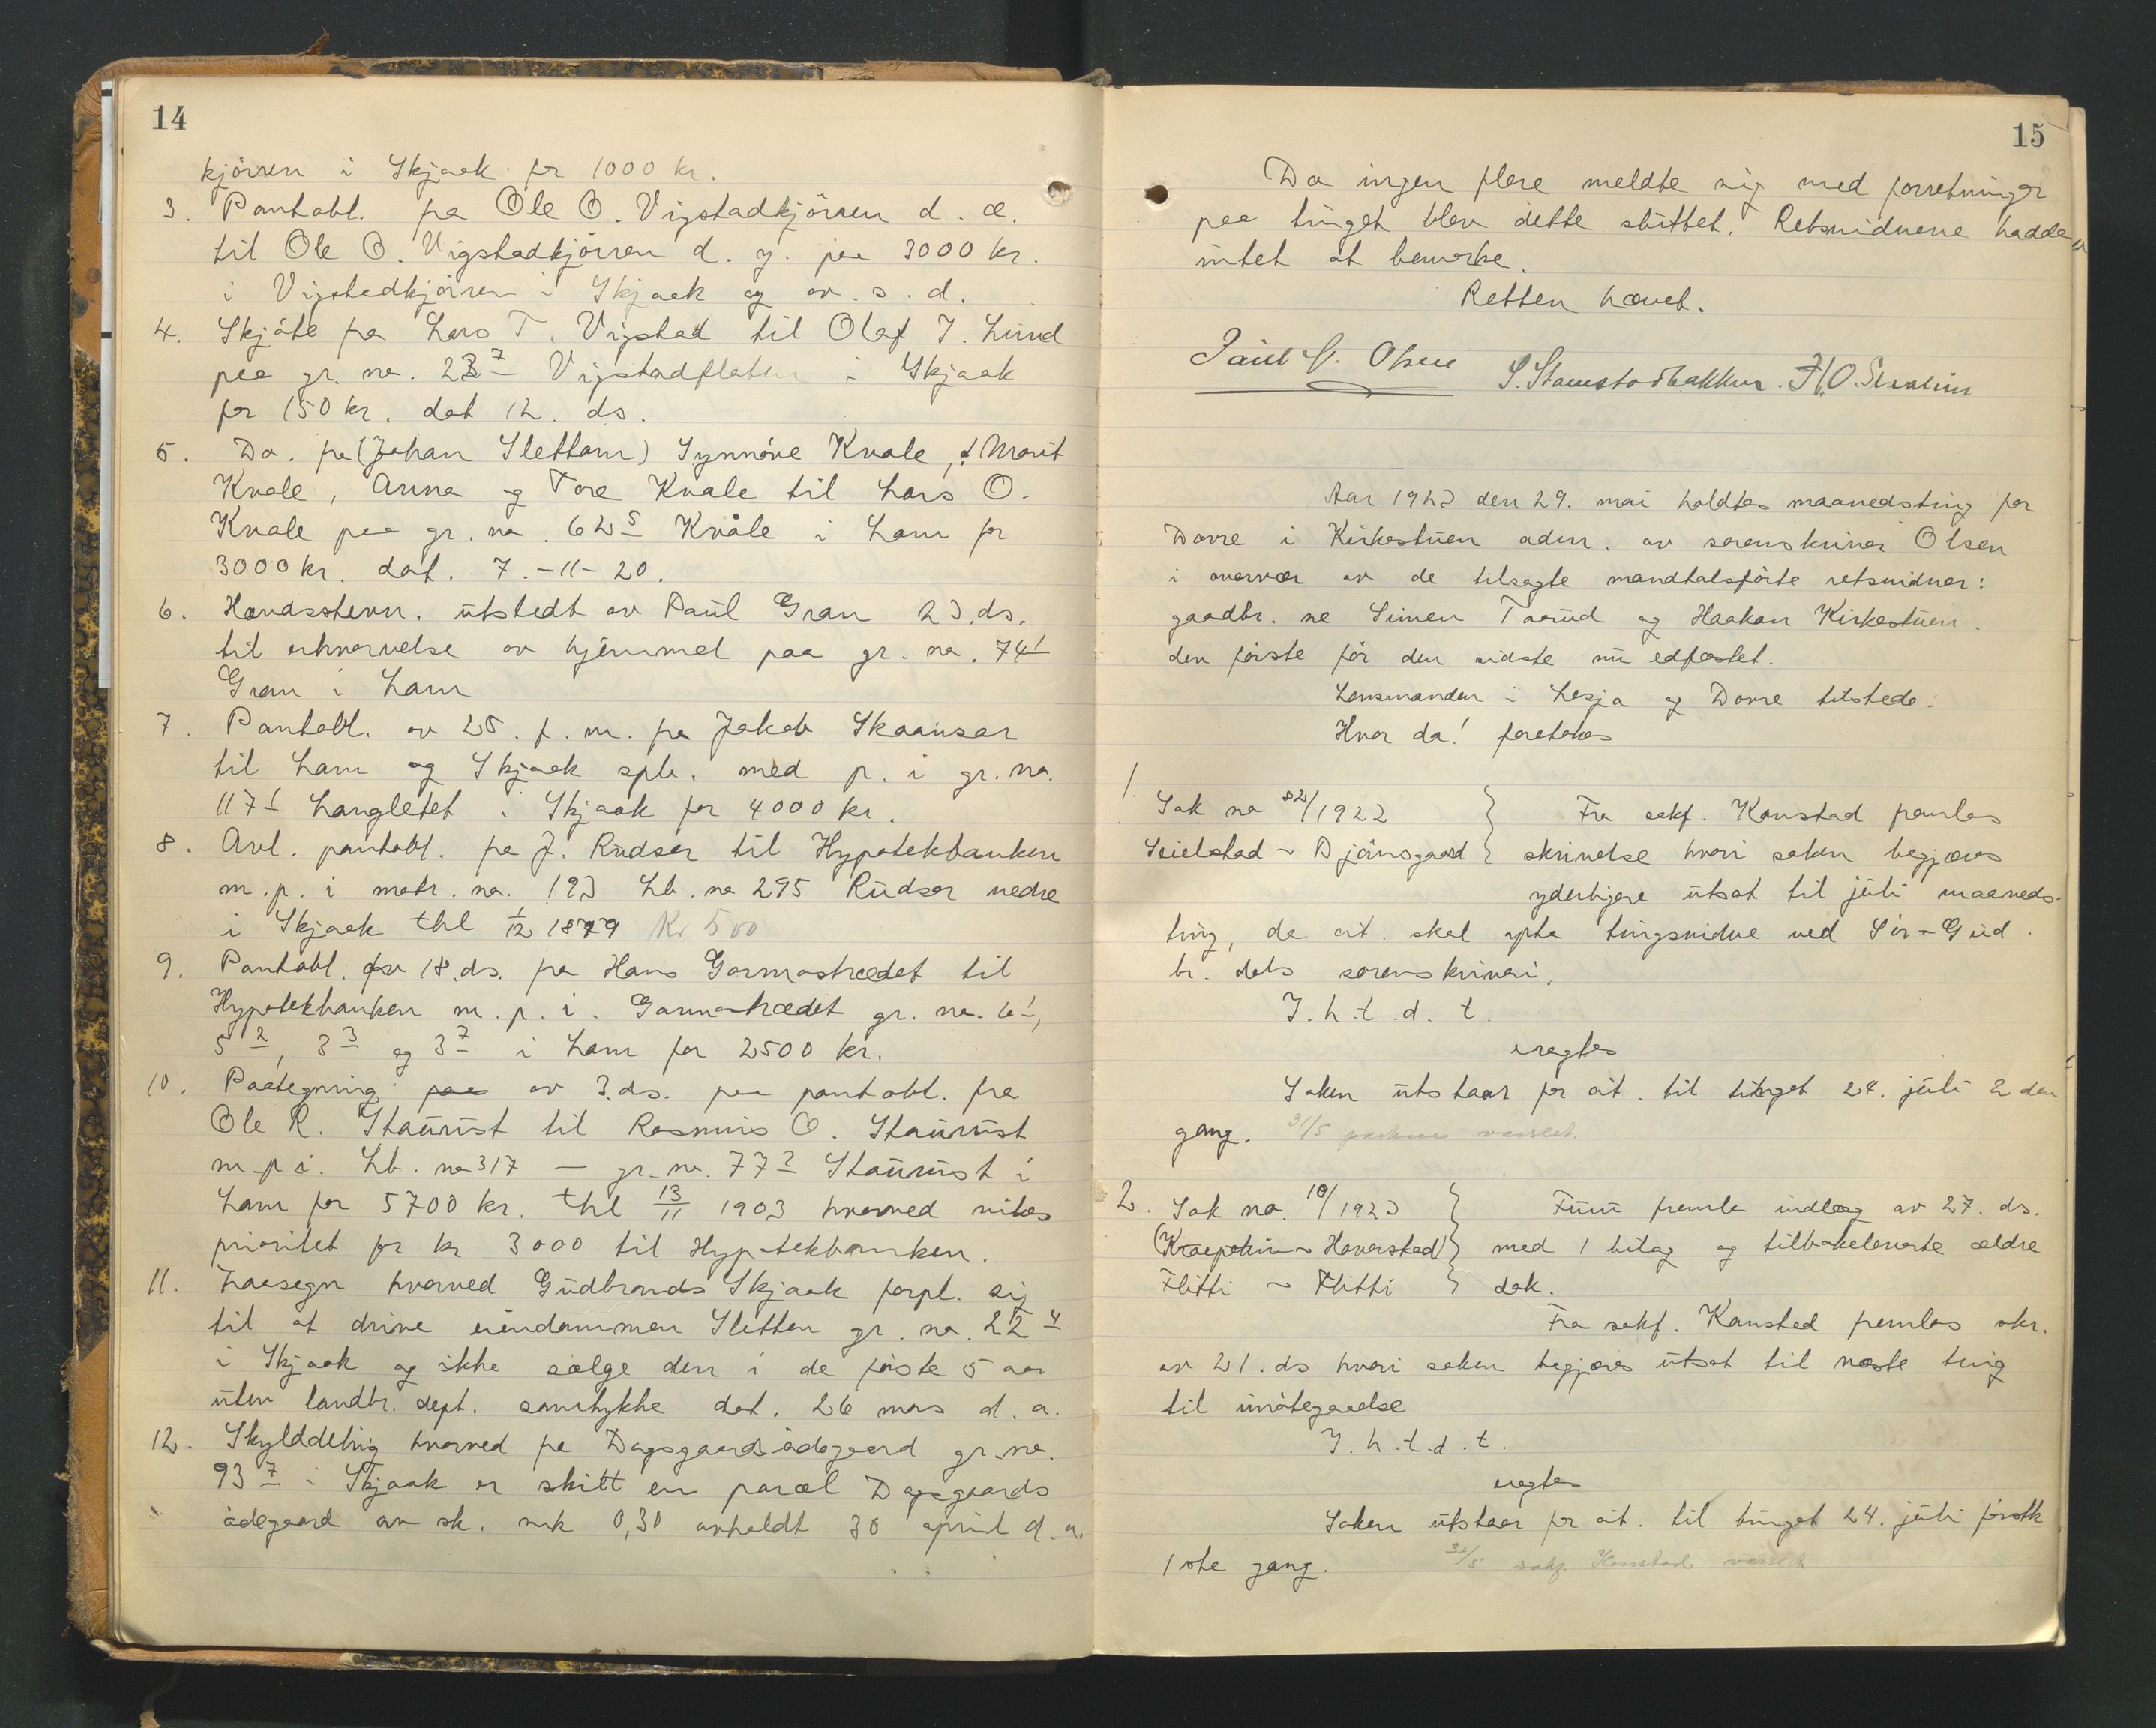 14
kjörren i Skjaak for 1000 kr.
3. Pantobl. fra Ole O. Vigstadkjörren d. æ.
til Ole O. Vigstadkjörren d. y. paa 3000 kr.
i Vigstadkjörren i Skjaak og av s. d.
4. Skjöte fra Lars T. Vigstad til Olaf J. Lund
paa gr. no. 23 7 Vigstadflaten i Skjaak
for 150 kr. dat 12. ds.
5. Do. fra (Johan Slettom) Synnöve Kvale, Marit
Kvale, Anna og Tore Kvale til Lars O.
Kvale paa gr. no. 62 5 Kvåle i Lom for
3000 kr. dat. 7.-11-20.
6. Hævdsstevn. utstedt av Paul Gran 23. ds.
til erhvervelse av hjemmel paa gr. no. 74 1
Gran i Lom
7. Pantobl. av 25. f. m. fra Jakob Skaansar
til Lom og Skjaak spb. med p. i gr. no.
117 1 Langletet i Skjaak for 4000 kr.
8. Avl. pantobl. fra J. Rudser til Hypotekbanken
m. p. i matr. no. 123 Lb. no 295 Rudser nedre
i Skjaak thl 1/12 1879 Kr 500
9. Pantobl. av 18. ds. fra Hans Garmostrædet til
Hypotekbanken m. p. i. Garmostrædet gr. no. 6 1,
5 2, 3 3 og 3 7 i Lom for 2500 kr.
10. Paategning paa av 3. ds. paa pantobl. fra
Ole R. Staurust til Rasmus O. Staurust
m. p. i. Lb. no 317 — gr. no. 77 2 Staurust i
Lom for 5700 kr. thl 13/11 1903 hvorved vikes
prioritet for kr 3000 til Hypotekbanken.
11. hvorved Gudbrands Skjaak forpl. sig
til at drive eiendommen Sletten gr. no. 22 4
i Skjaak og ikke sælge den i de förste 5 aar
uten landbr. dept. samtykke dat. 26 mars d. a.
12. Skylddeling hvorved fra Dagsgaardsödegaard gr. no.
93 7 i Skjaak er skilt en parcel Dagsgaards
ödegaard av sk. mk 0,30 avholdt 30 april d. a.
15
Da ingen flere meldte sig med forretninger
paa tinget blev dette sluttet. Retsvidnene hadde
intet at bemerke.
Retten hævet.
Paul Olsen S. Stamstadbakken. H. O.
Aar 1923 den 29. mai holdtes maanedsting for
Dovre i Kirkestuen adm. av sorenskriver Olsen
i overvær av de tilsagte mandtalsförte retsvidner:
gaardbr. ne Simen Toftrud og Haakon Kirkestuen.
den förste för den sidste nu edfæstet.
Lensmanden i Lesja og Dovre tilstede.
Hvor da! foretokes
1.
Sak no 82/1922 Fra sakf. Kanstad fremlas
Seielstad ~ Bjönsgaard skrivelse hvori saken begjæres
yderligere utsat til juli maaneds-
ting, da cit. skal opta tingsvidne ved Sör-Gud.
br. dals sorenskriveri.
I. h. t. d. t.
eragtes
Saken utstaar for cit. til tinget 24. juli 2 den
gang. 31/5 varslet.
2. Sak no. 10/1923 Funn fremla indlæg av 27. ds.
(Kraepelin ~ Haverstad) med 1 bilag og tilbakeleverte ældre
Flitti ~ Flitti dok.
Fra sakf. Kanstad fremlas skr.
av 21. ds hvori saken begjæres utsat til næste ting
til imötegaaelse
I. h. t. d. t.
eragtes
Saken utstaar for cit. til tinget 24. juli förstk
1 ste gang. 31/5 sakf. Kanstad varslet